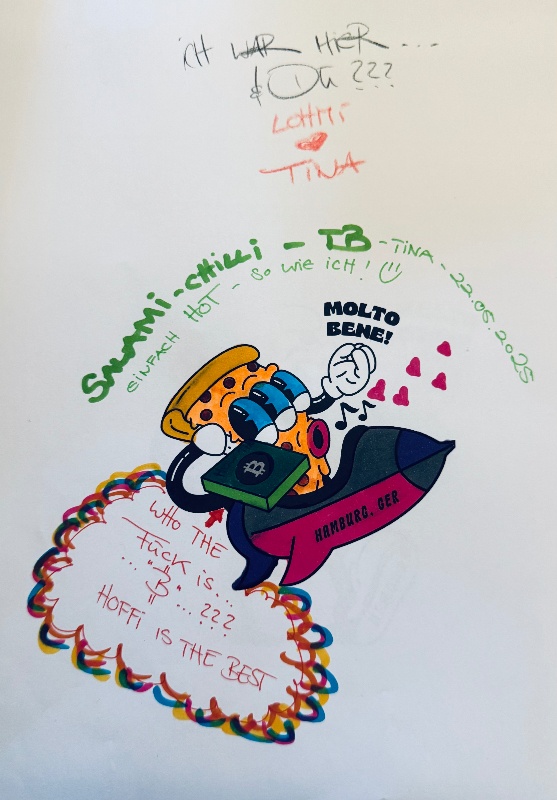 ICH WAR HIER...
& DU ???
LOHMI
TINA
SALAMI-CHILLI - TB - TINA - 22.05.2025
EINFACH HOT - SO WIE ICH!
MOLTO
BENE!
B
HAMBURG, GER
WHO THE
FUCK IS...
... "B" ...???
HOFFI IS THE BEST